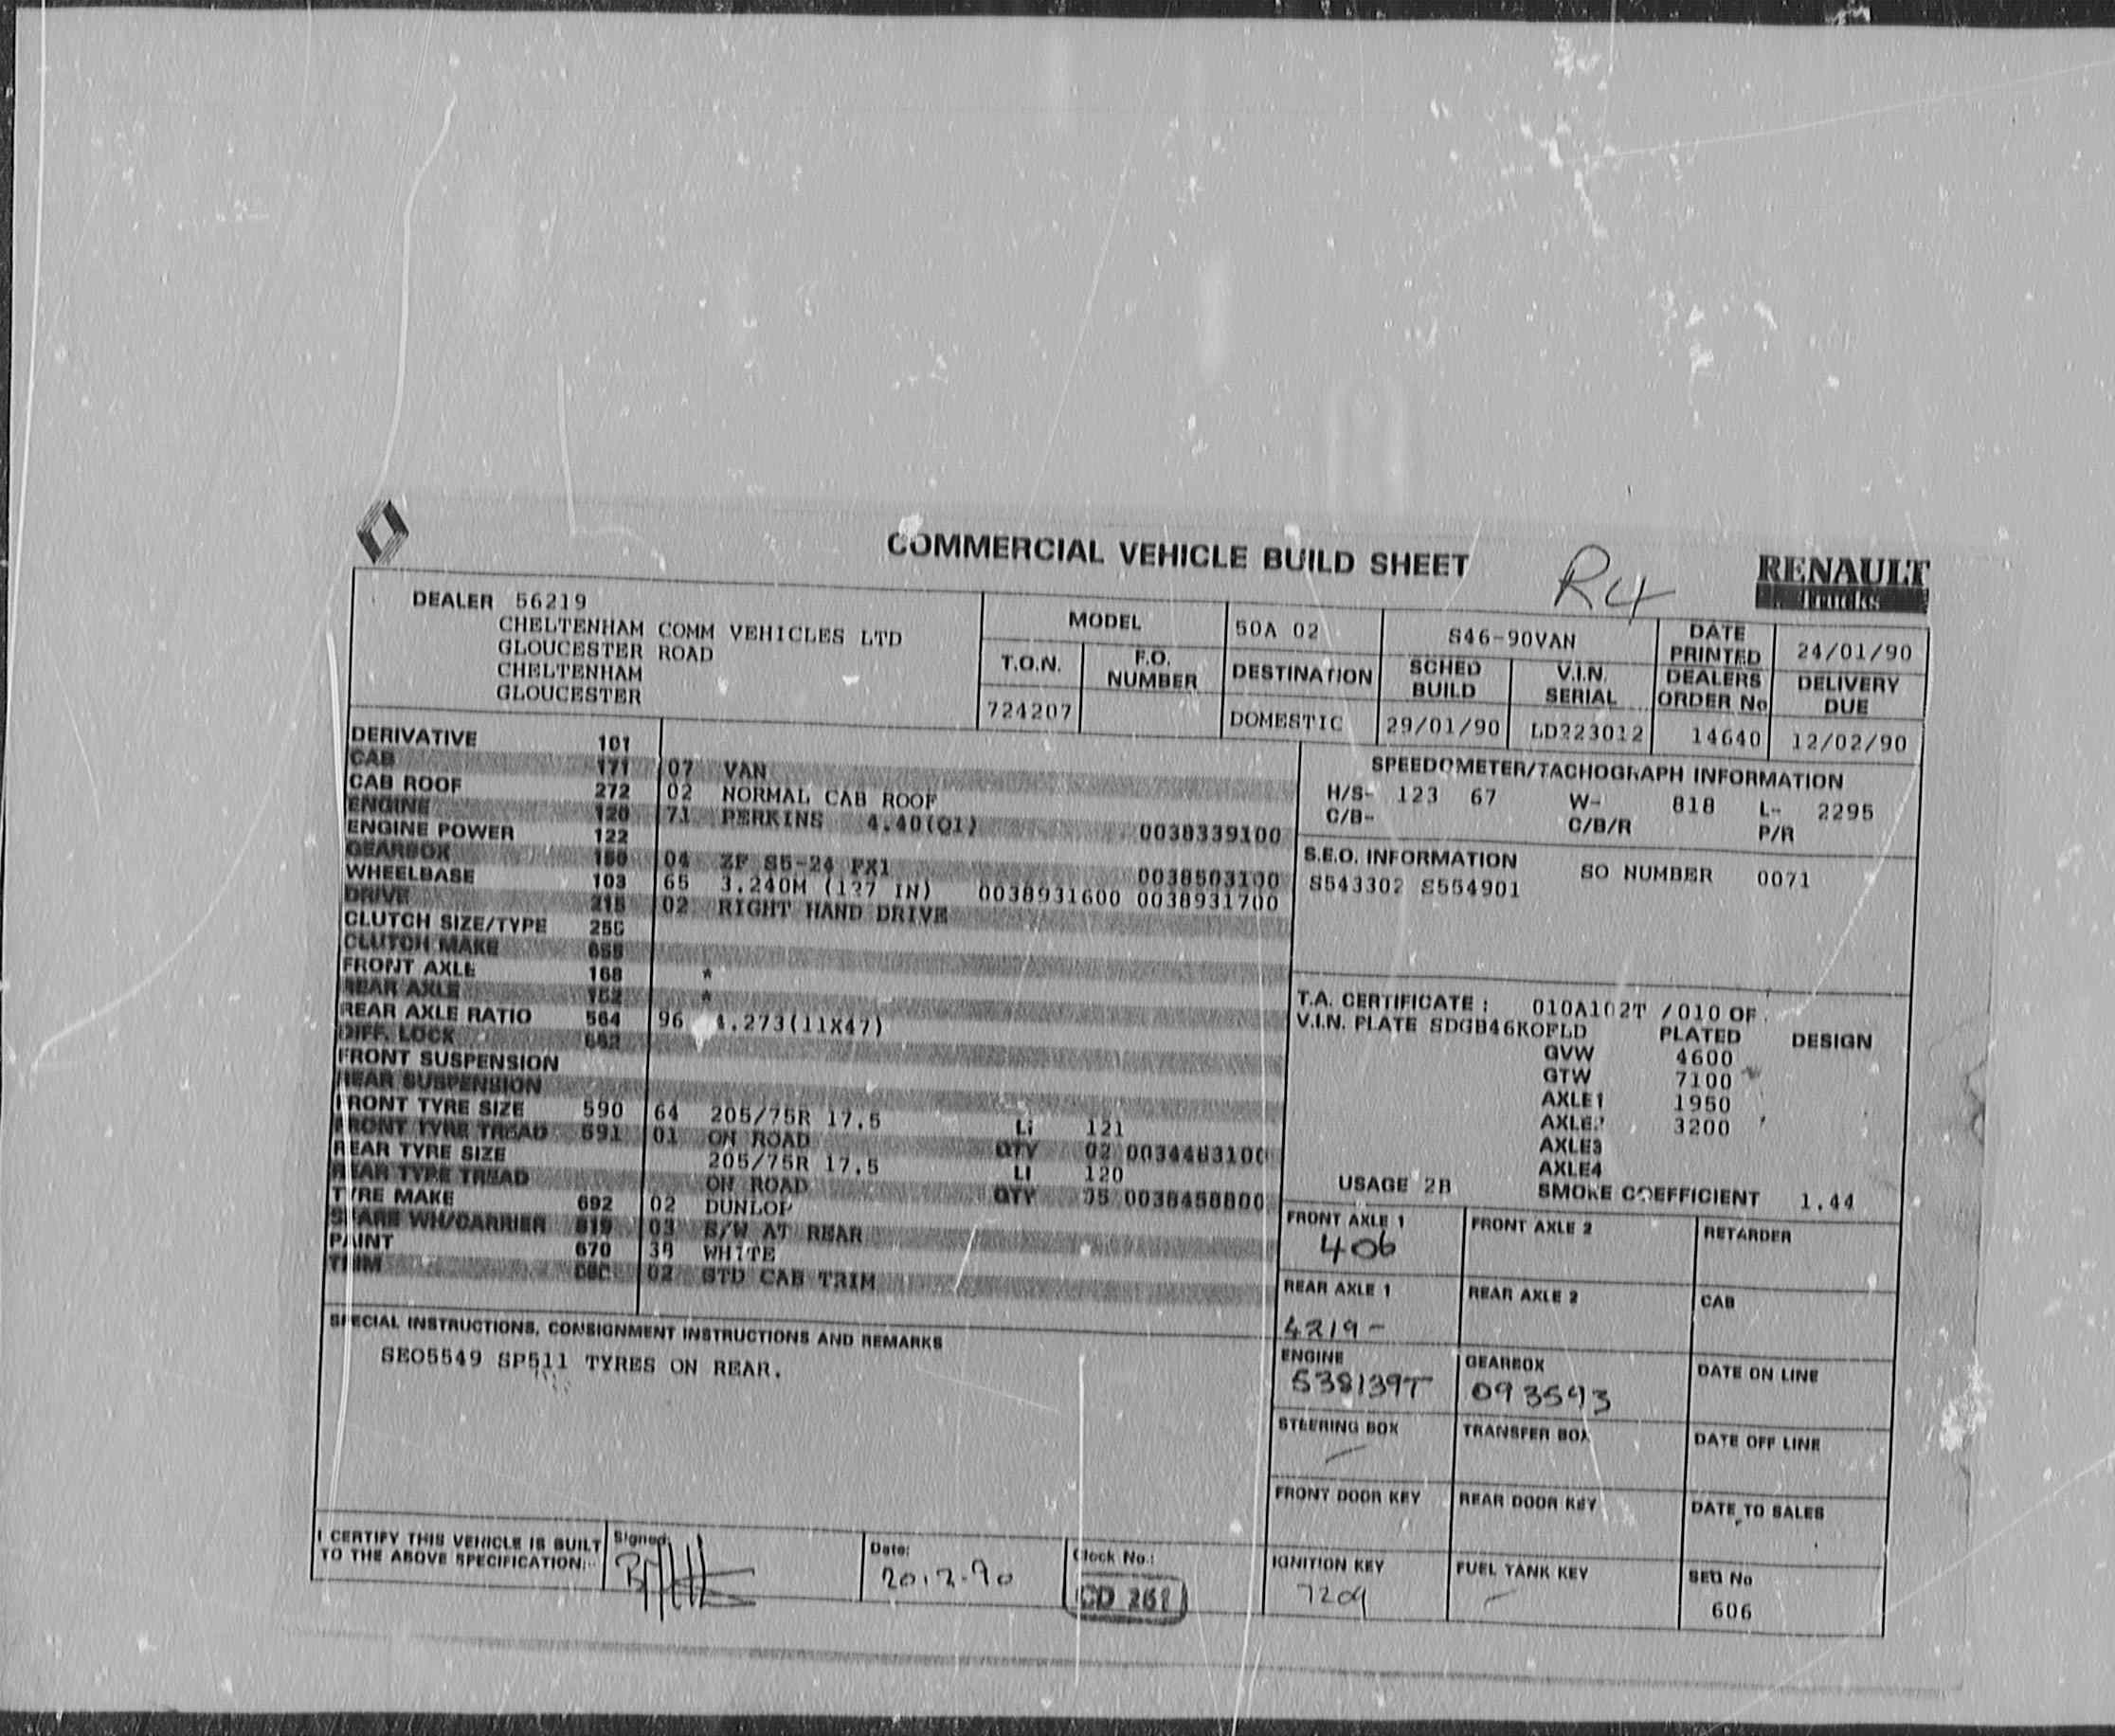 COMMERCIAL VEHICLE BUILD SHEET
R4
RENAULT
Trucks
DEALER 56219
CHELTENHAM COMM VEHICLES LTD
GLOUCESTER ROAD
CHELTENHAM
GLOUCESTER
MODEL 50A 02 S46-90VAN DATE PRINTED 24/01/90
T.O.N. F.O. NUMBER DESTINATION SCHED BUILD V.I.N. SERIAL DEALERS ORDER No DELIVERY DUE
724207 DOMESTIC 29/01/90 LD223012 14640 12/02/90
DERIVATIVE 101
CAB 171 07 VAN
CAB ROOF 272 02 NORMAL CAB ROOF
ENGINE 120 71 PERKINS 4.40(Q1) 0038339100
ENGINE POWER 122
GEARBOX 180 04 ZF S5-24 FX1 0038503100
WHEELBASE 103 65 3.240M (127 IN) 0038931600 0038931700
DRIVE 215 02 RIGHT HAND DRIVE
CLUTCH SIZE/TYPE 250
CLUTCH MAKE 655
FRONT AXLE 168 *
REAR AXLE 152 *
REAR AXLE RATIO 564 96 4.273(11X47)
DIFF. LOCK 662
FRONT SUSPENSION
REAR SUSPENSION
FRONT TYRE SIZE 590 64 205/75R 17.5 Li 121
FRONT TYRE TREAD 591 01 ON ROAD QTY 02 0034483100
REAR TYRE SIZE 205/75R 17.5 LI 120
REAR TYRE TREAD ON ROAD QTY 05 0038458800
TYRE MAKE 692 02 DUNLOP
SPARE WH/CARRIER 619 03 S/W AT REAR
PAINT 670 39 WHITE
TRIM 02 STD CAB TRIM
SPEEDOMETER/TACHOGRAPH INFORMATION
H/S- 123 67 W- 818 L- 2295
C/B- C/B/R P/R
S.E.O. INFORMATION SO NUMBER 0071
S543302 S554901
T.A. CERTIFICATE: 010A102T /010 OF
V.I.N. PLATE SDGB46KOFLD PLATED DESIGN
GVW 4600
GTW 7100
AXLE1 1950
AXLE2 3200
AXLE3
AXLE4
USAGE 2B SMOKE COEFFICIENT 1.44
FRONT AXLE 1 FRONT AXLE 2 RETARDER
406
REAR AXLE 1 REAR AXLE 2 CAB
4219-
ENGINE GEARBOX DATE ON LINE
538139T 093593
STEERING BOX TRANSFER BOX DATE OFF LINE
FRONT DOOR KEY REAR DOOR KEY DATE TO SALES
IGNITION KEY FUEL TANK KEY SEQ No
7209 606
SPECIAL INSTRUCTIONS, CONSIGNMENT INSTRUCTIONS AND REMARKS
SEO5549 SP511 TYRES ON REAR.
I CERTIFY THIS VEHICLE IS BUILT
TO THE ABOVE SPECIFICATION:
Signed:
Date:
20.2.90
Clock No.:
CD 261